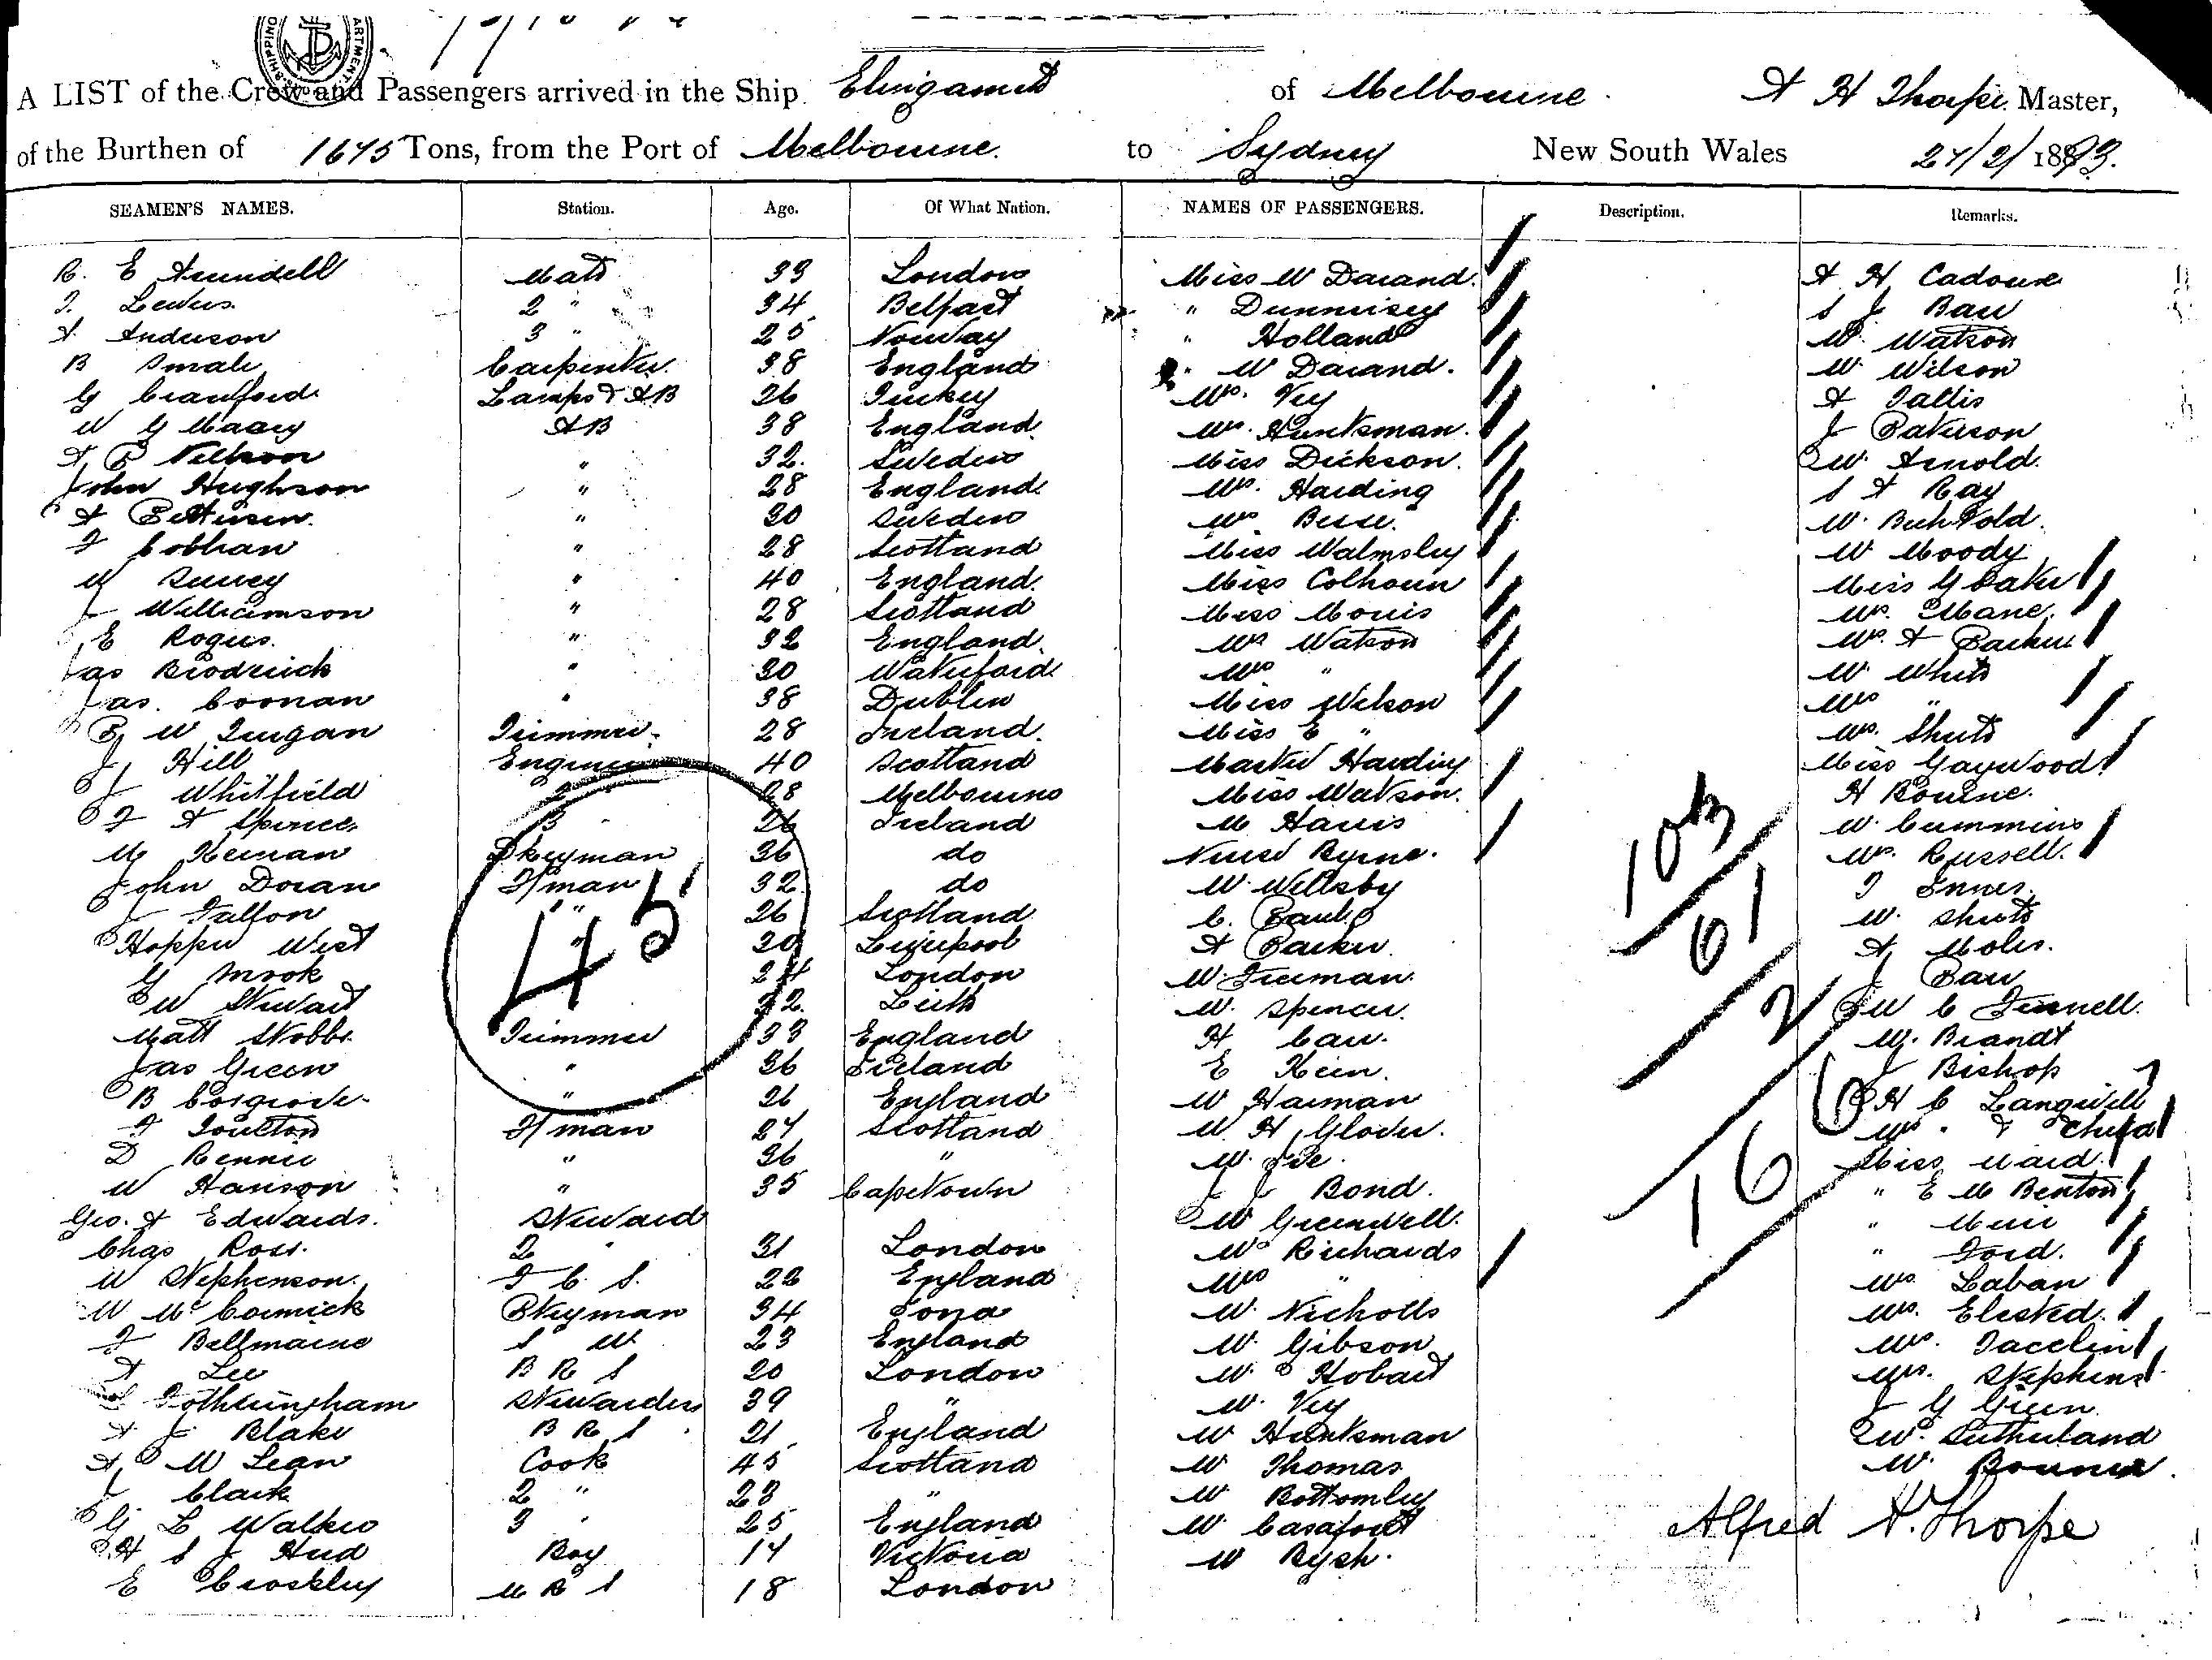 SHIPPING DEPARTMENT
A LIST of the Crew and Passengers arrived in the Ship Elingamite of Melbourne A H Thorpe Master,
of the Burthen of 1675 Tons, from the Port of Melbourne to Sydney New South Wales 27/2/1893.
SEAMEN'S NAMES. Station. Age. Of What Nation. NAMES OF PASSENGERS. Description. Remarks.
R. E Arundell Mate 33 London Miss W Darand. A H Cadoux
T. Lewers. 2 " 34 Belfast " S J Barr
A Anderson 3 " 25 Norway " Holland W. Watson
B Smale Carpenter. 38 England " W Darand. W. Wilson
G Crawford. Lamps & AB 26 Turkey Mrs. Vey A Tallis
W G AB 38 England Mrs. Huntsman. J Paterson
A P Neilson " 32. Sweden Miss Dickson. W. Arnold.
John Hughson " 28 England Mrs. Harding S A Ray
A Pettersen. " 30 Sweden Mrs W.
T Cobhan " 28 Scotland Miss Walmsley W Moody
W " 40 England. Miss Colhoun Miss G Baker
J Williamson " 28 Scotland Miss Morris Mrs. Mane.
E Rogers. " 32 England. Mr Watson Mrs. A Parker
Jas Broderick " 30 Waterford Mrs " W White
Jas. Coonan " 38 Dublin Miss Wilson Mrs "
P W Trimmer. 28 Ireland. Miss E " Mrs. Shute
J Hill Engineer 40 Scotland Master Harding Miss Gaywood
J Whitfield 2 28 Melbourne Miss Watson. H Bourne.
T A Spence 3 26 Ireland M Harris W. Cummins
M Keenan Dkeyman 36 do Nurse Byrne. Mrs. Russell.
John Doran F/man 32 do W. Willsby T Innes.
J Fallon " 26 Scotland C. Paul W. Shute
Hopper West " 20 Liverpool A Parker. A Moler.
G Mook 24 London W. Freeman. J Parr
W Stewart 32. Leith W. Spencer. W C Finnell.
Matt Stobbs. Trimmer 33 England H Carr. W. Brandt
Jas Green " 36 Ireland E Kein. J Bishop
B Cosgrove " 26 England W Harman H C Langwill
T Toulton F/man 27 Scotland W. H Glover. Mrs " & Child
D Rennie " 36 " W. Miss Ward.
W Hanson " 35 Capetown J J Bond. " E M Benton
Geo. A Edwards. Steward W Greenwell. " Muir
Chas Ross. 2 " 31 London Mr Richards " Ford.
W Stephenson. F C S. 22 England Mrs " Mrs. Laban
W McCormick Pkeyman 34 Iona W. Nicholls Mrs. Elested.
T Bellmaine S W 23 England W. Gibson Mrs. Jacelin
A Lee B R S 20 London W. Hobart Mrs. Stephens
Fotheringham Stewardess 39 " W. Vey J G Green
A J Blake B R S 21 England W Huntsman W. Sutherland
A McLean Cook 45 Scotland W Thomas W. Bourne.
J Clark 2 " 23 " W Bottomley
G L Walker 3 " 25 England W. Carafoot
H S J Hud Boy 17 Victoria W Bysh.
E Croskley M R S 18 London
45
103
61
2
16
Alfred A. Thorpe